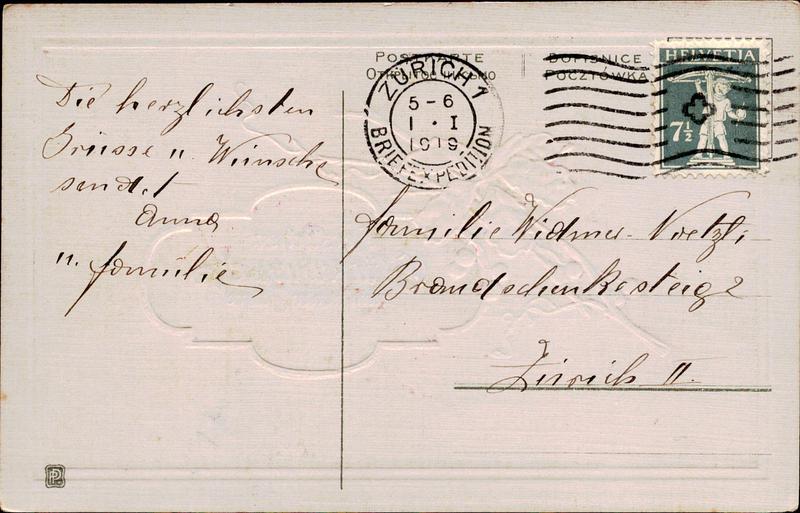 POSTKARTE
DOPISNICE
POCZTÓWKA
ZÜRICH 1
5-6
1·I
1919
BRIEFEXPEDITION
HELVETIA
7½
Die herzlichsten
Grüsse u. Wünsche
sendet
Anna
u. Familie
Familie Widmer-Noetzli
Brandschenkesteig 2
Zürich II.